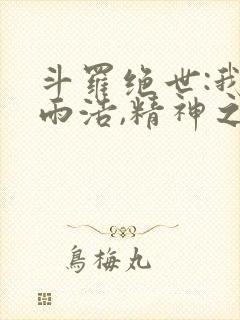 斗羅绝世:我
雨浩,精神之
烏梅丸